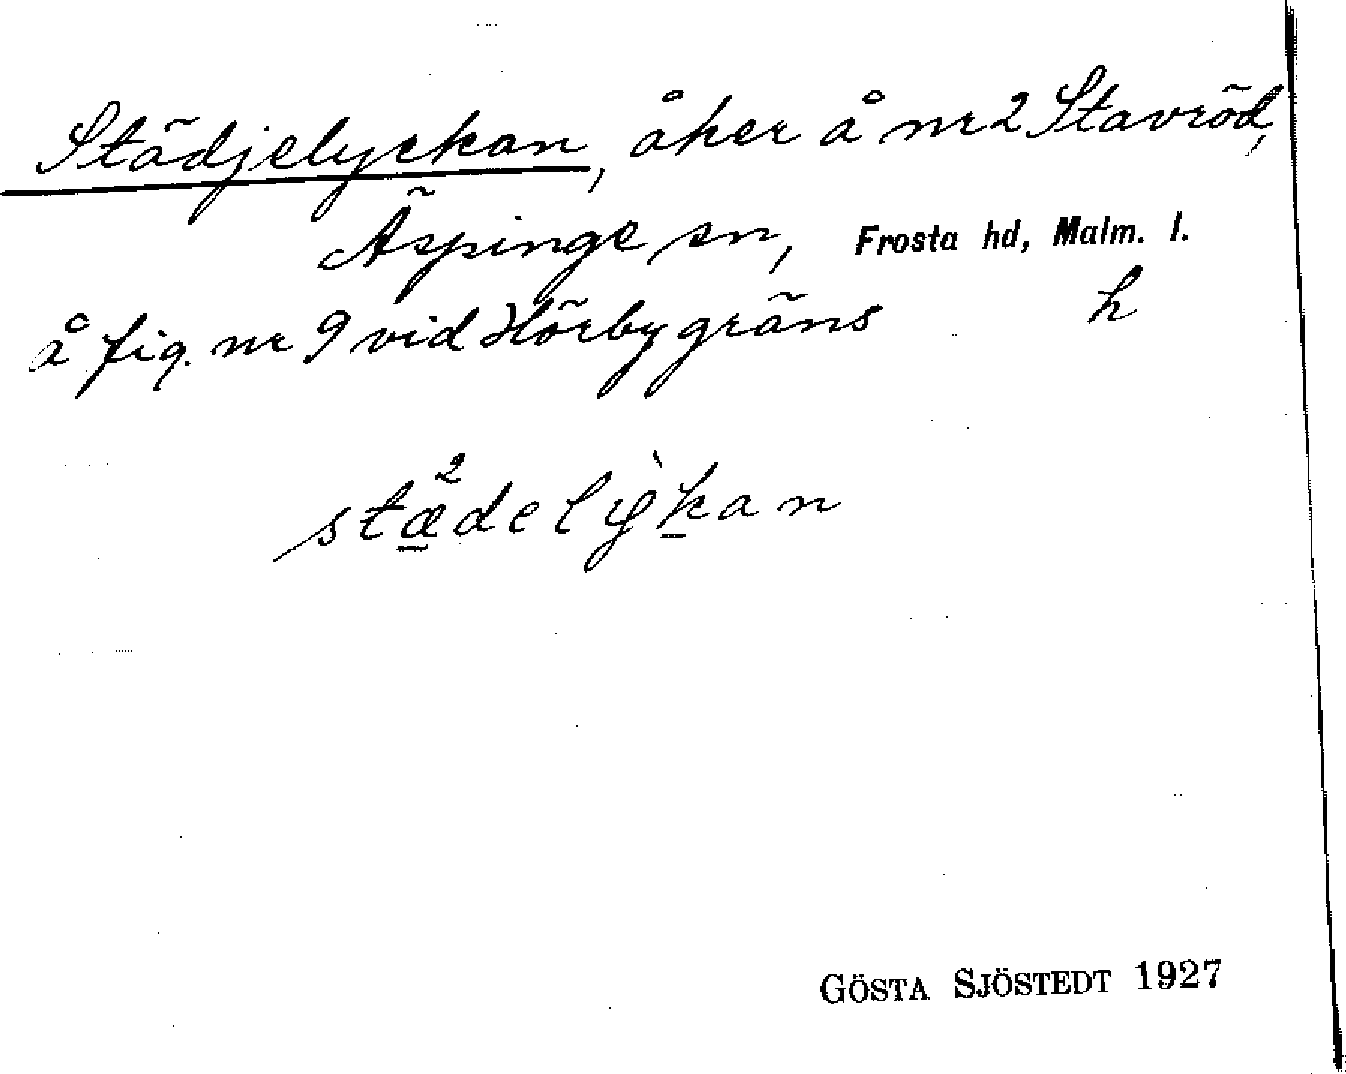 Städjelyckan, åker å nr 2 Stavröd,
Äspinge sn, Frosta hd, Malm. l.
å fig. nr 9 vid Hörby gräns h
stædelykan
GÖSTA SJÖSTEDT 1927